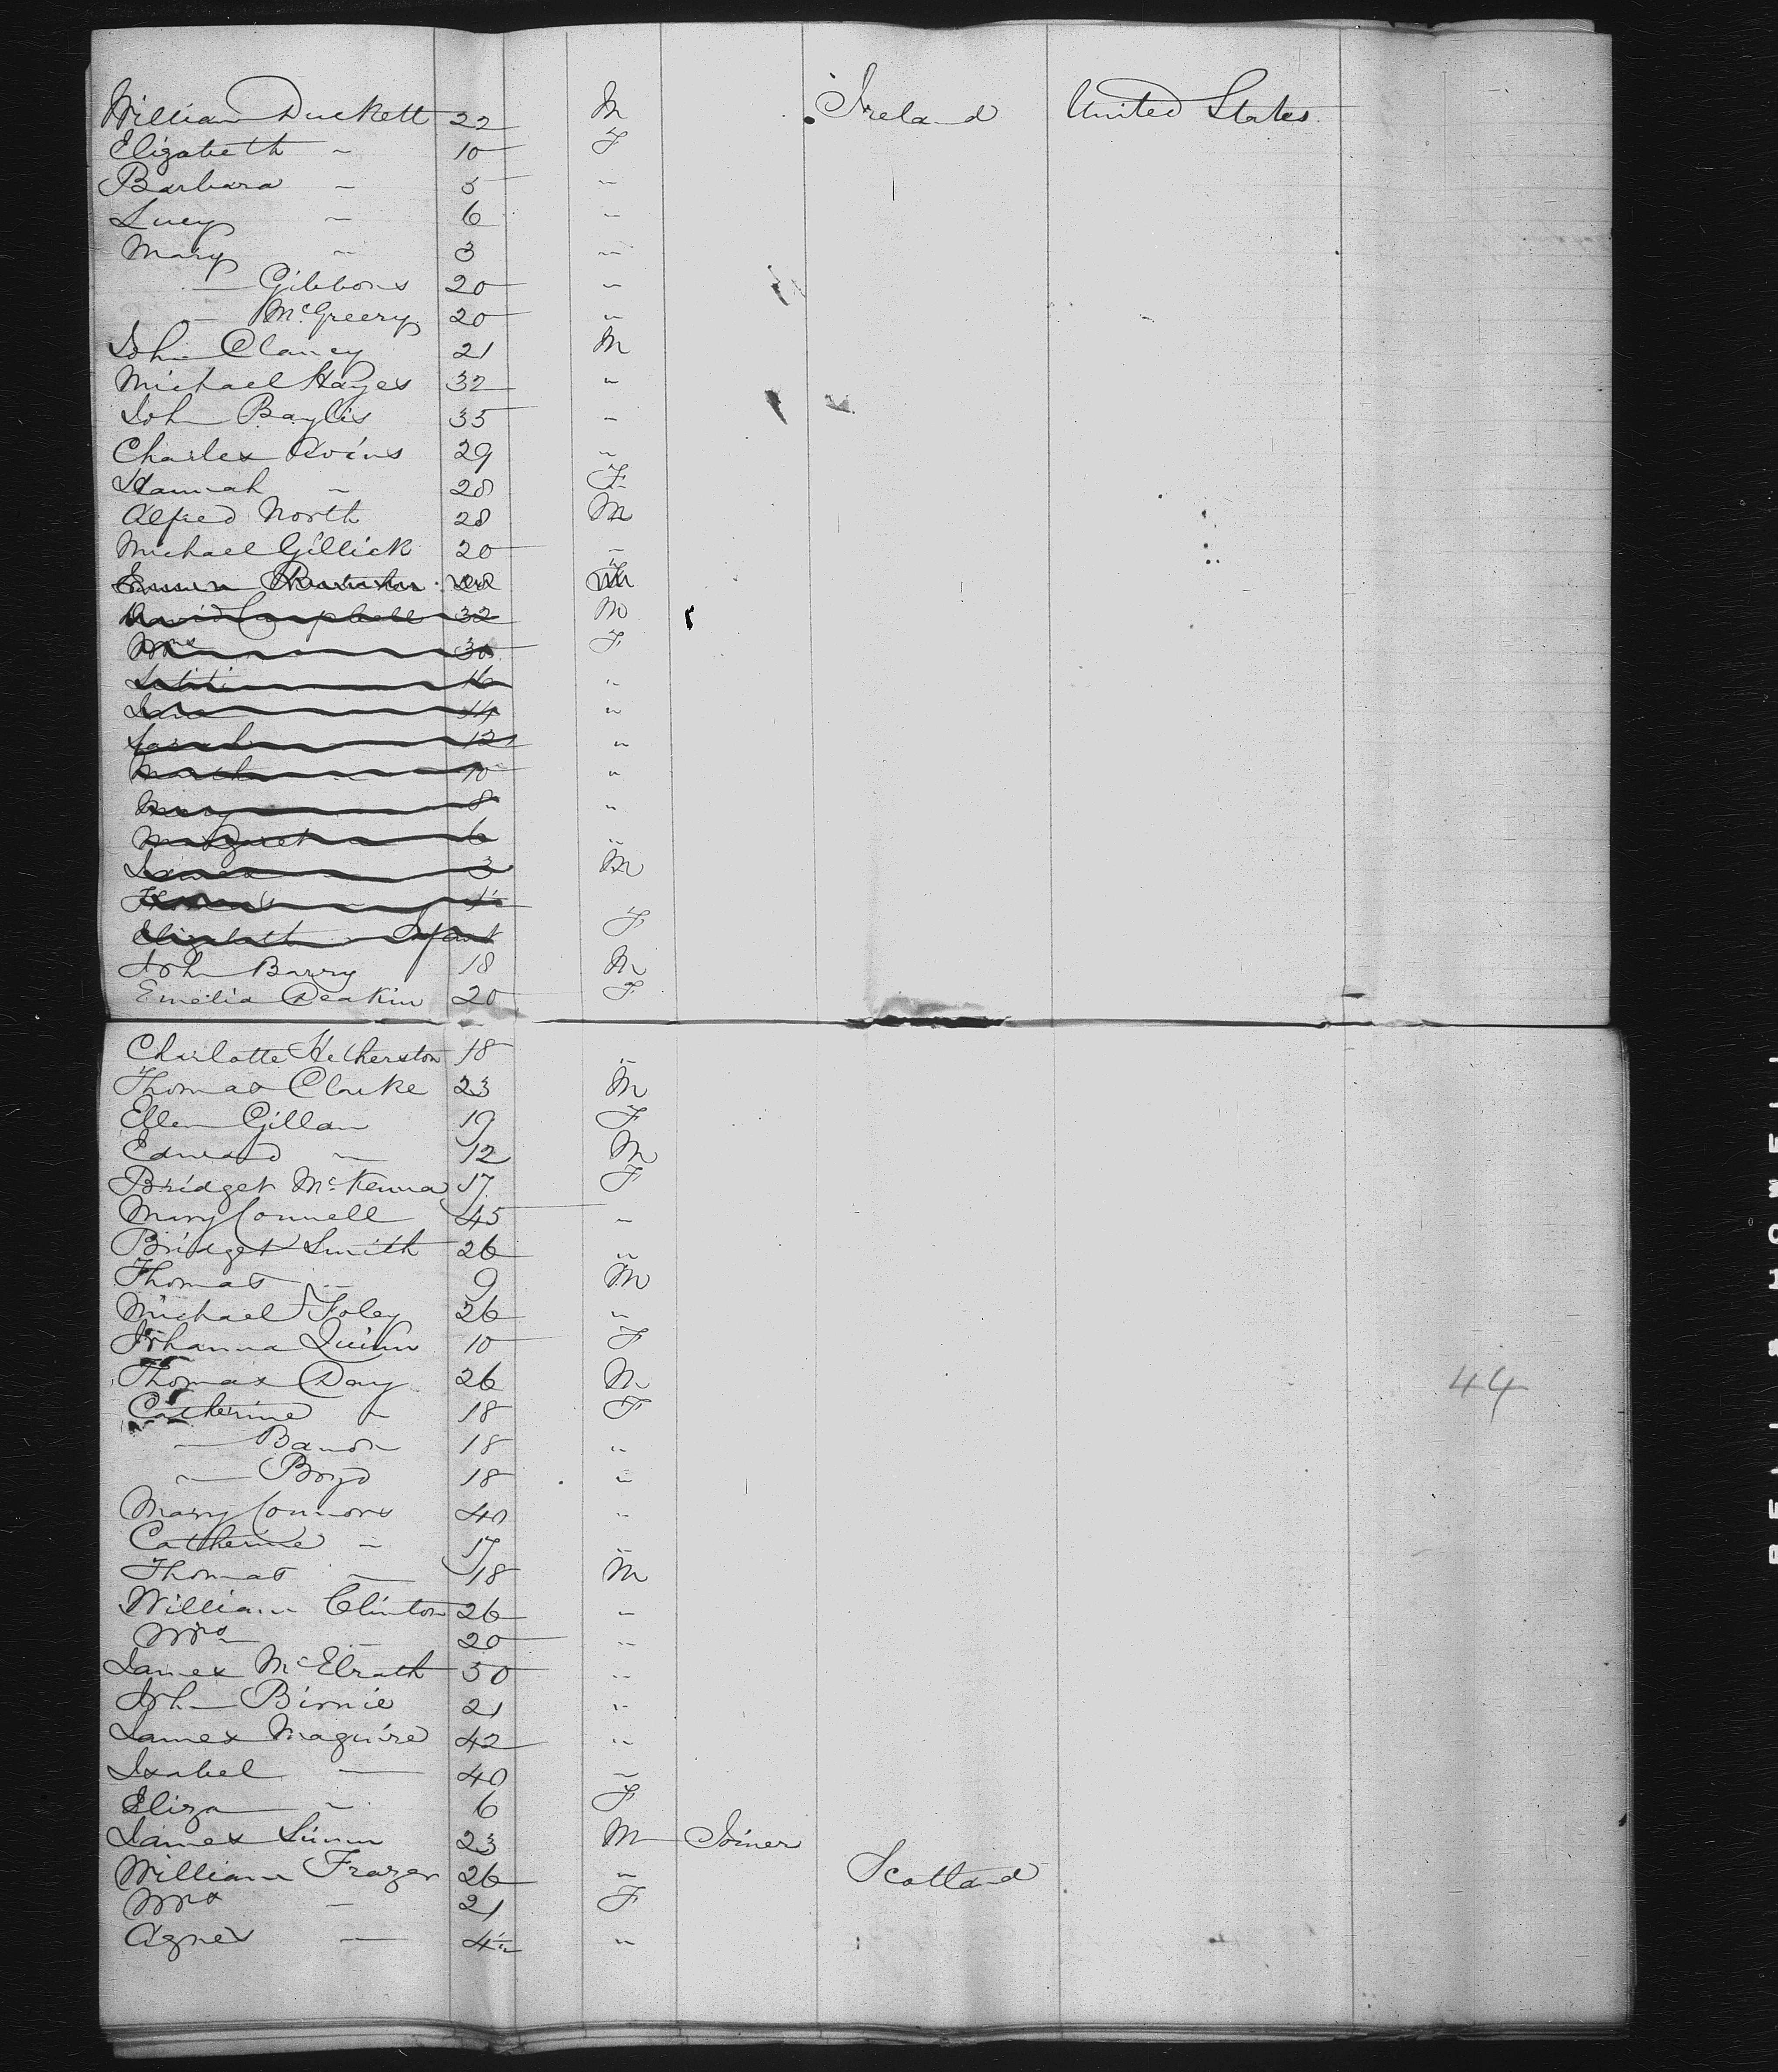 William Duckett 22 M Ireland United States
Elizabeth " 10 F
Barbara " 5 "
Lucy " 6 "
Mary " 3 "
" Gibbons 20 "
" McGreery 20 "
John Clancy 21 M
Michael Hayes 32 "
John Baylis 35 "
Charles Avins 29 "
Hannah " 28 F
Alfred North 28 M
Michael Gillick 20 "
Emma F
David Campbell 32 M
Mrs 30 F
16 "
Jane 14 "
Sarah 12 "
Martha 10 "
Mary 8 "
Margaret 6 "
James 3 M
Thomas
Elizabeth Infant F
John Barry 18 M
Emelia Deakin 20 F
Charlotte Hetherston 18 "
Thomas Clarke 23 M
Ellen Gillan 19 F
Edward " 12 M
Bridget McKenna 17 F
Mary Connell 45 "
Bridget Smith 26 "
Thomas " 9 M
Michael Foley 26 "
Johanna Quinn 10 F
Thomas Day 26 M 44
Catherine " 18 F
" Banon 18 "
" Boyd 18 "
Mary Connors 40 "
Catherine " 17 "
Thomas " 18 M
William Clinton 26 "
Mrs " 20 "
James McElrath 50 "
John Birnie 21 "
James Maguire 42 "
Isabel " 40 "
Eliza " 6 F
James Linnn 23 M Joiner
William Frazer 26 " Scotland
Mrs " 21 F
Agnes " 4 "
BELL & HOWELL